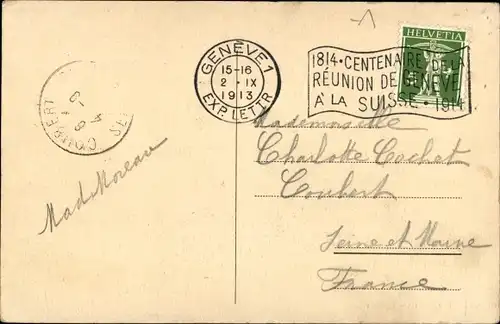 HELVETIA
GENÈVE 1
15-16
2-IX
1913
EXP. LETTR
1814 • CENTENAIRE DE LA
RÉUNION DE GENÈVE
À LA SUISSE • 1914
COUBERT
Mad Moreau
Mademoiselle
Charlotte Cochet
Coubert
Seine et Marne
France